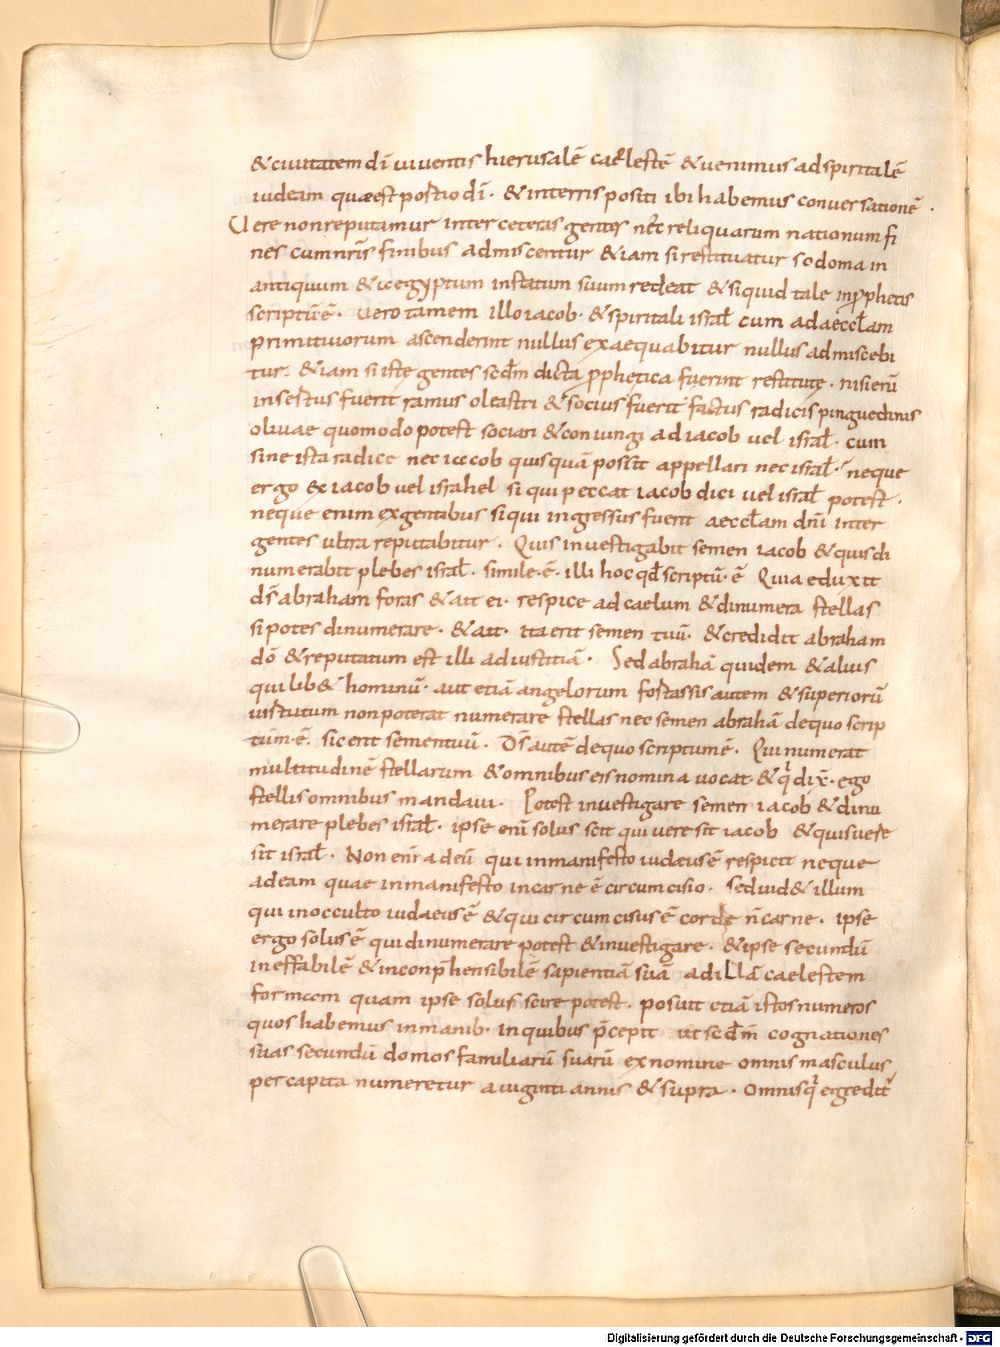 & ciuitatem dī uiuentis hierusalē caelestē & uenimus ad spiritalē
iudeam quae est portio dī · & in terris positi ibi habemus conuersationē ·
Vere non reputamur inter ceteras gentes nec reliquarum nationum fi
nes cum nr̄is finibus admiscentur & iam si restituatur sodoma in
antiquum & egyptum in statum suum redeat & si quid tale in prophetis
scriptū ē · uero tamem illo iacob · & spiritali isrl̄ cum ad aeccl̄am
primitiuorum ascenderint nullus exaequabitur nullus admiscebi
tur · & iam si iste gentes scd̄m dicta prophetica fuerint restitute · nisi enī
insertus fuerit ramus oleastri & socius fuerit factus radicis pinguedinis
oliuae quomodo potest sociari & coniungi ad iacob uel isrl̄ · cum
sine ista radice nec iacob quisquā possit appellari nec isrl̄ · neque
ergo ex iacob uel israhel si qui peccat iacob dici uel isrl̄ potest ·
neque enim ex gentibus si qui ingressus fuerit aeccl̄am dn̄i inter
gentes ultra reputabitur · Quis inuestigabit semen iacob & quis di
numerabit plebes isrl̄ · simile · ē · illi hoc qd̄ scriptū · ē Quia eduxit
dr̄ abraham foras & ait ei · respice ad caelum & dinumera stellas
si potes dinumerare · & ait · ita erit semen tuū · & credidit abraham
dō & reputatum est illi ad iustitiā · Sed abrahā quidem & alius
qui lib& hominū · aut etiā angelorum fortassis autem & superiorū
uirtutum non poterat numerare stellas nec semen abrahā de quo scrip
tum · ē · sic erit semen tuū · Ds̄ autē de quo scriptum ē · Qui numerat
multitudinē stellarum & omnibus eis nomina uocat · & q̣ dix̄ · ego
stellis omnibus mandaui · Potest inuestigare semen iacob & dinu
merare plebes isrl̄ · ipse enī solus scit qui uere sit iacob & quis uere
sit isrl̄ · Non eni a deū qui in manifesto iudaeus ē respicit neque
ad eam quae in manifesto in carne ē circumcisio · Sed uid& illum
qui in occulto iudaeus ē & qui circumcisus ē corde n̄ carne · ipse
ergo solus ē qui dinumerare potest & inuestigare · & ipse secundū
ineffabilē & inconp̄hensibilē sapientiā suā ad illā caelestem
formam quam ipse solus scire potest · posuit etiā istos numeros
quos habemus in manib · in quibus p̄cepit ut scd̄m cognationes
suas secundū domos familiarū suarū ex nomine omnis masculus
per capita numeretur a uiginti annis & supra · Omnis q̣ egredit̄
Digitalisierung gefördert durch die Deutsche Forschungsgemeinschaft - DFG